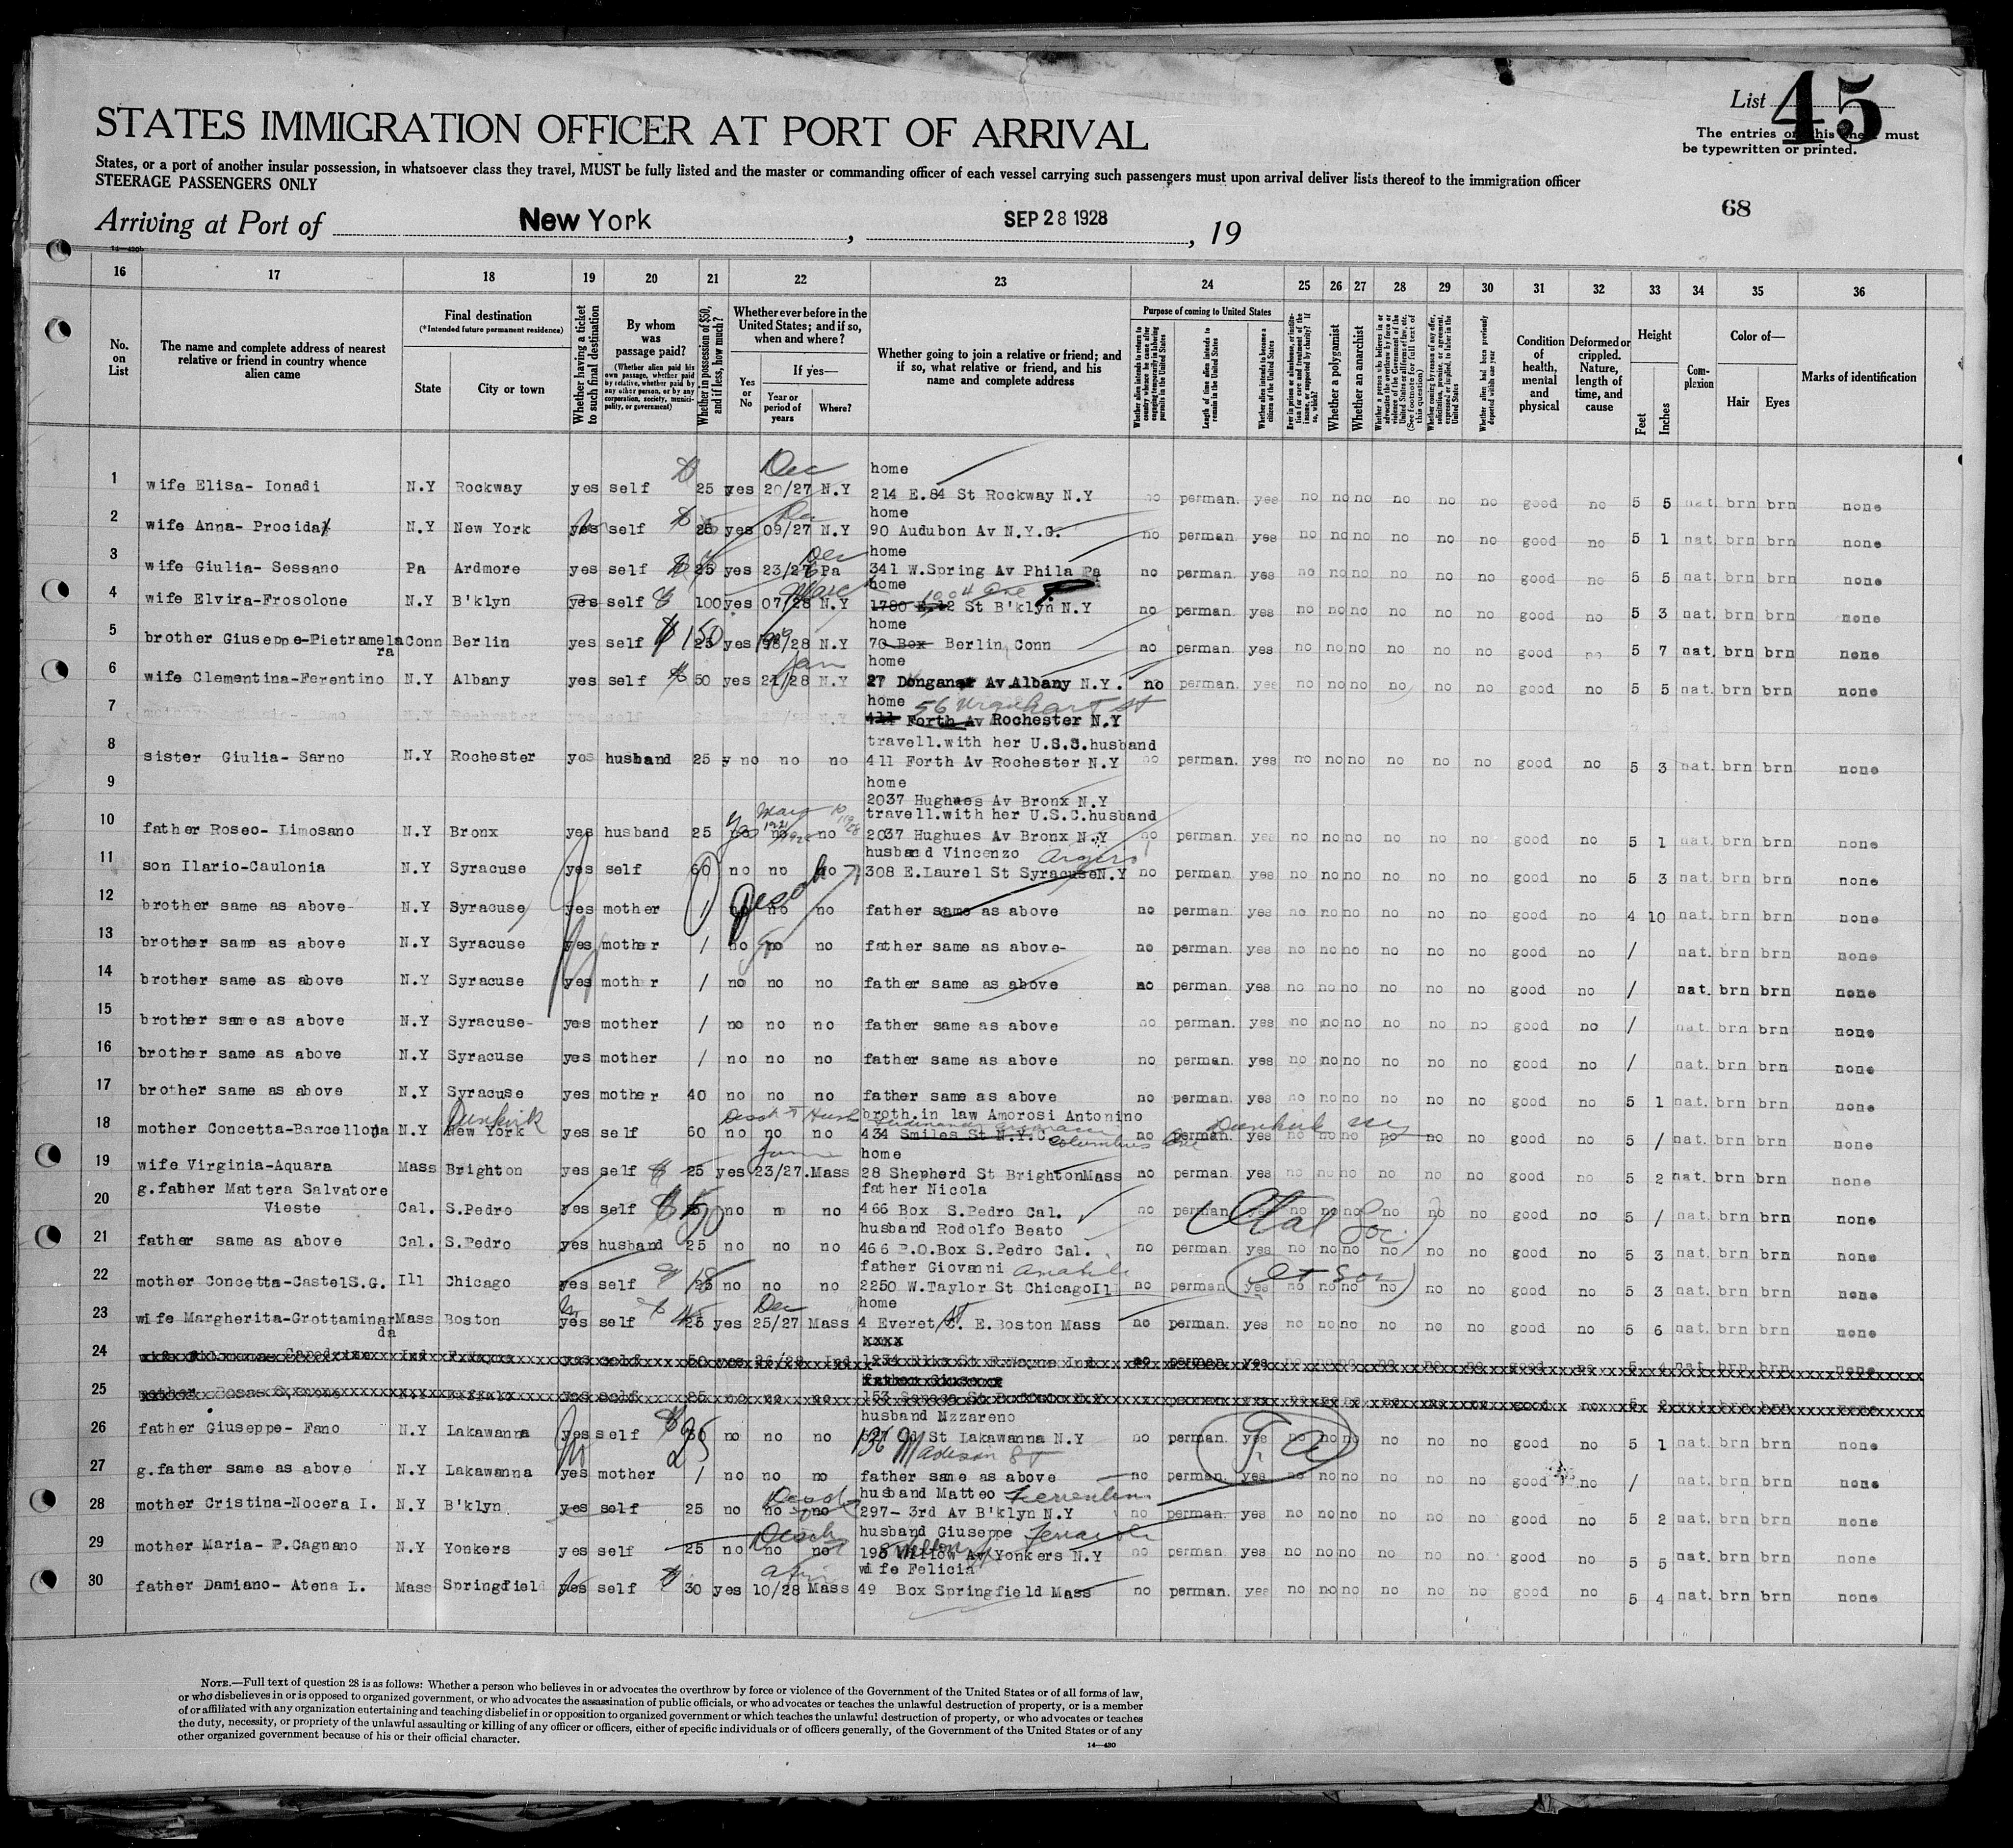 List 45
STATES IMMIGRATION OFFICER AT PORT OF ARRIVAL
The entries on this sheet must
be typewritten or printed.
States, or a port of another insular possession, in whatsoever class they travel, MUST be fully listed and the master or commanding officer of each vessel carrying such passengers must upon arrival deliver lists thereof to the immigration officer
STEERAGE PASSENGERS ONLY
68
Arriving at Port of New York, SEP 28 1928, 19
14—430
16 17 18 19 20 21 22 23 24 25 26 27 28 29 30 31 32 33 34 35 36
No. on List
The name and complete address of nearest relative or friend in country whence alien came
Final destination
(*Intended future permanent residence)
State
City or town
Whether having a ticket to such final destination
By whom was passage paid?
(Whether alien paid his own passage, whether paid by relative, whether paid by any other person, or by any corporation, society, municipality, or government)
Whether in possession of $50, and if less, how much?
Whether ever before in the United States; and if so, when and where?
Yes or No
If yes—
Year or period of years
Where?
Whether going to join a relative or friend; and if so, what relative or friend, and his name and complete address
Purpose of coming to United States
Whether alien intends to return to country whence he came after engaging temporarily in laboring pursuits in the United States
Length of time alien intends to remain in the United States
Whether alien intends to become a citizen of the United States
Ever in prison or almshouse, or institution for care and treatment of the insane, or supported by charity? If so, which?
Whether a polygamist
Whether an anarchist
Whether a person who believes in or advocates the overthrow by force or violence of the Government of the United States or all forms of law, etc. (See footnote for full text of this question)
Whether coming by reason of any offer, solicitation, promise, or agreement, expressed or implied, to labor in the United States
Whether alien had been previously deported within one year
Condition of health, mental and physical
Deformed or crippled. Nature, length of time, and cause
Height
Feet
Inches
Complexion
Color of—
Hair
Eyes
Marks of identification
Dec home
1 wife Elisa- Ionadi N.Y Rockway yes self 25 yes 20/27 N.Y 214 E.84 St Rockway N.Y no perman. yes no no no no no no good no 5 5 nat. brn brn none
home
2 wife Anna- Procida N.Y New York yes self 25 yes 09/27 N.Y 90 Audubon Av N.Y.C. no perman yes no no no no no no good no 5 1 nat. brn brn none
Dec home
3 wife Giulia- Sessano Pa Ardmore yes self 25 yes 23/27 Pa 341 W.Spring Av Phila Pa no perman. yes no no no no no no good no 5 5 nat. brn brn none
home
4 wife Elvira-Frosolone N.Y B'klyn yes self 100 yes 07/28 N.Y 1780 E.12 St B'klyn N.Y no perman. yes no no no no no no good no 5 3 nat. brn brn none
home
5 brother Giuseppe-Pietramela Conn Berlin yes self $150 25 yes /28 N.Y 70 Box Berlin Conn no perman. yes no no no no no no good no 5 7 nat. brn brn none
ra
Jan home
6 wife Clementina-Ferentino N.Y Albany yes self 50 yes 21/28 N.Y 27 Dongan Av Albany N.Y. no perman. yes no no no no no no good no 5 5 nat. brn brn none
home 56 Urquhart St
7 N.Y Rochester yes self N.Y 411 Forth Av Rochester N.Y
travell.with her U.S.S.husband
8 sister Giulia- Sarno N.Y Rochester yes husband 25 no no no 411 Forth Av Rochester N.Y no perman. yes no no no no no no good no 5 3 nat. brn brn none
9 home
2037 Hughues Av Bronx N.Y
travell.with her U.S.C.husband
10 father Roseo- Limosano N.Y Bronx yes husband 25 no no 2037 Hughues Av Bronx N.Y no perman. yes no no no no no no good no 5 1 nat. brn brn none
husband Vincenzo
11 son Ilario-Caulonia N.Y Syracuse yes self 60 no no no 308 E.Laurel St Syracuse N.Y no perman. yes no no no no no no good no 5 3 nat. brn brn none
12 brother same as above N.Y Syracuse yes mother / no no no father same as above no perman. yes no no no no no no good no 4 10 nat. brn brn none
13 brother same as above N.Y Syracuse yes mother / no no no father same as above- no perman. yes no no no no no no good no / nat. brn brn none
14 brother same as above N.Y Syracuse yes mother / no no no father same as above no perman. yes no no no no no no good no / nat. brn brn none
15 brother same as above N.Y Syracuse- yes mother / no no no father same as above no perman. yes no no no no no no good no / nat. brn brn none
16 brother same as above N.Y Syracuse yes mother / no no no father same as above no perman. yes no no no no no no good no / nat. brn brn none
17 brother same as above N.Y Syracuse yes mother 40 no no no father same as above no perman. yes no no no no no no good no 5 1 nat. brn brn none
Dunkirk broth.in law Amorosi Antonino
18 mother Concetta-Barcellona N.Y New York yes self 60 no no no 434 Smiles St N.Y.C. Columbus Ave Dunkirk NY no perman. yes no no no no no no good no 5 / nat. brn brn none
June home
19 wife Virginia-Aquara Mass Brighton yes self 25 yes 23/27. Mass 28 Shepherd St Brighton Mass no perman. yes no no no no no no good no 5 2 nat. brn brn none
g.father Mattera Salvatore father Nicola
20 Vieste Cal. S.Pedro yes self no no 466 Box S.Pedro Cal. no perman. yes no no no no no no good no 5 / nat. brn brn none
Ital Soc.
husband Rodolfo Beato
21 father same as above Cal. S.Pedro yes husband 25 no no no 466 P.O.Box S.Pedro Cal. no perman. yes no no no no no no good no 5 3 nat. brn brn none
father Giovanni
22 mother Concetta-CastelS.G. Ill Chicago yes self 25 no no no 2250 W.Taylor St Chicago Il no perman. yes no no no no no no good no 5 3 nat. brn brn none
Dec home
23 wife Margherita-Grottaminar Mass Boston yes self 25 yes 25/27 Mass 4 Everet St. E.Boston Mass no perman. yes no no no no no no good no 5 6 nat. brn brn none
da
xxxx
24 Ind yes self 50 yes 26/28 Ind 1234 St F.Wayne Ind no perman. yes good no 5 4 nat. brn brn none
25 mother Rosa N.Y Buffalo yes self 25 no no no 153 Seneca St Buffalo N.Y good no 5 brn brn none
husband Mzzareno
26 father Giuseppe- Fano N.Y Lakawanna yes self no no no St Lakawanna N.Y no perman. yes no no no no no no good no 5 1 nat. brn brn none
136 Madison St
27 g.father same as above N.Y Lakawanna yes mother / no no no father same as above no perman. yes no no no no no no good no / nat. brn brn none
husband Matteo
28 mother Cristina-Nocera I. N.Y B'klyn yes self 25 no no no 297- 3rd Av B'klyn N.Y no perman. yes no no no no no no good no 5 2 nat. brn brn none
husband Giuseppe
29 mother Maria- P.Cagnano N.Y Yonkers yes self 25 no no no 198 Willow Av Yonkers N.Y no perman. yes no no no no no no good no 5 5 nat. brn brn none
wife Felicia
30 father Damiano- Atena L. Mass Springfield yes self 30 yes 10/28 Mass 49 Box Springfield Mass no perman. yes no no no no no no good no 5 4 nat. brn brn none
NOTE.—Full text of question 28 is as follows: Whether a person who believes in or advocates the overthrow by force or violence of the Government of the United States or of all forms of law,
or who disbelieves in or is opposed to organized government, or who advocates the assassination of public officials, or who advocates or teaches the unlawful destruction of property, or is a member
of or affiliated with any organization entertaining and teaching disbelief in or opposition to organized government or which teaches the unlawful destruction of property, or who advocates or teaches
the duty, necessity, or propriety of the unlawful assaulting or killing of any officer or officers, either of specific individuals or of officers generally, of the Government of the United States or of any
other organized government because of his or their official character.
14—430